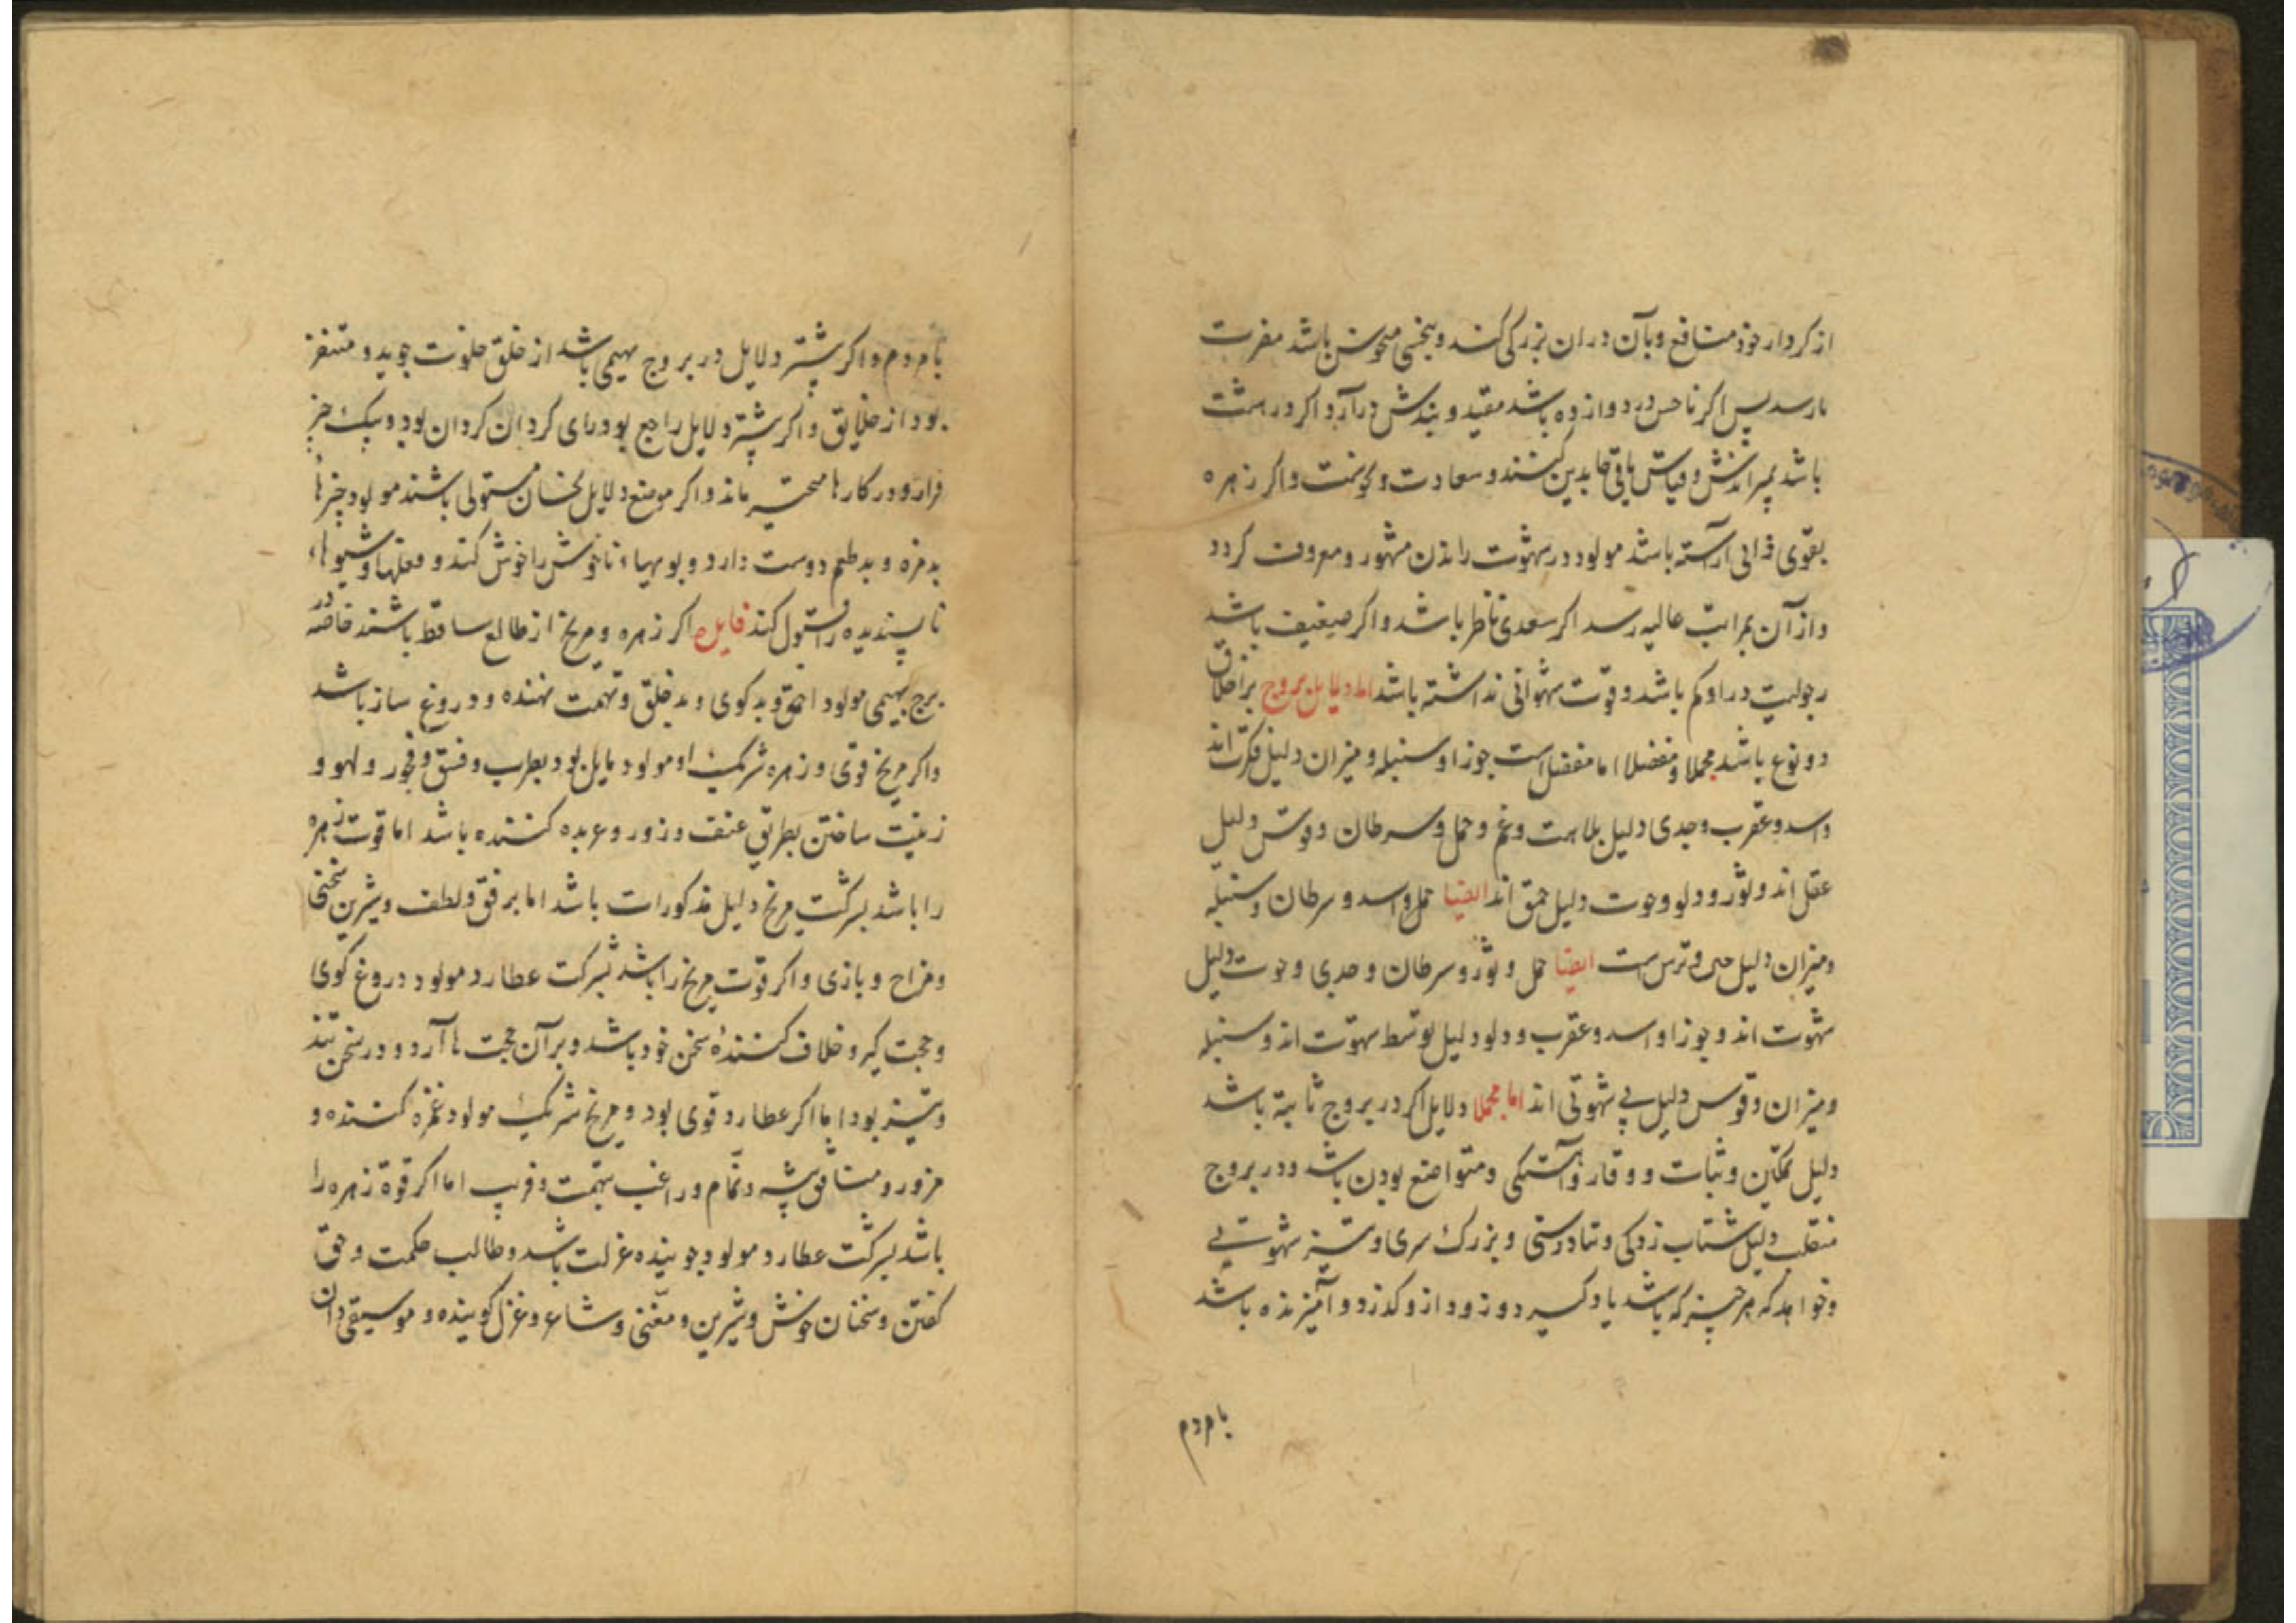 از کردار خود منافع و بآن دران بزرکی کند و بنحسی منحوس باشد مضرت
بارسد پس اکر ناحس در دوازده باشد مقید و بندش درآرد اکر در هشت
باشد بمیراندش و قیاس باقی ها بدین کنند و سعادت و نحوست و اکر زهره
بقوی ذاتی آراسته باشد مولود در شهوت راندن مشهور و معروف کردد
و از آن بمراتب عالیه رسد اکر سعدی ناظر باشد و اکر ضعیف باشد
رجولیت در او کم باشد و قوت شهوانی نداشته باشد اما دلایل بروج بر اخلاق
دو نوع باشد مجملا و مفصلا اما مفصل است جوزا و سنبله و میزان دلیل فکرت اند
و اسد و عقرب و جدی دلیل بلاهت و غم و حمل و سرطان و قوس دلیل
عقل اند و ثور و دلو و حوت دلیل حمق اند ایضا حمل و اسد و سرطان و سنبله
و میزان دلیل و ترس است ایضا حمل و ثور و سرطان و جدی و حوت دلیل
شهوت اند و جوزا و اسد و عقرب و دلو دلیل توسط شهوت اند و سنبله
و میزان و قوس دلیل بی شهوتی اند اما مجملا دلایل اکر در بروج ثابته باشد
دلیل تمکن و ثبات و وقار و آهستکی و متواضع بودن باشد و در بروج
منقلب دلیل شتاب زدکی و نادرستی و بزرک سری و تیز شهوت بی
و خواهد که هر چیز که باشد یاد کیرد و زود ازو کذرد و آمیزنده باشد
بامردم
بامردم و اکر پیشتر دلایل در بروج بهیمی باشد از خلق خلوت جوید و متنفر
بود از خلایق و اکر پیشتر دلایل راجع بود رای کردان کردان بود و بیک چیز
قرار و در کارها متحیر ماند و اکر موضع دلایل نحسان مستولی باشند مولود چیزها
بدمزه و بدطعم دوست دارد و بویهاء ناخوش را خوش کند و فعلها و شیوهاء
ناپسندیده را قبول کند فایده اکر زهره و مریخ از طالع ساقط باشند خاصه در
برج بهیمی مولود احمق و بدکوی و بدخلق و تهمت نهنده و دروغ ساز باشد
و اکر مریخ قوی و زهره شریک او مولود مایل بود بطرب و فسق و فجور و لهو و
زینت ساختن بطریق عنف و زور و عربده کننده باشد اما قوت زهره
را باشد بشرکت مریخ دلیل مذکورات باشد اما برفق و لطف و شیرین سخنی
و مزاح و بازی و اکر قوت مریخ را باشد بشرکت عطارد مولود دروغ کوی
و حجت کیر و خلاف کنندۀ سخن خود باشد و بر آن حجت ها آرد و در سخن تند
و تیز بود اما اکر عطارد قوی بود و مریخ شریک مولود غمزه کننده و
مزور و منافق پیشه و نمام و راغب بتهمت و فریب اما اکر قوة زهره را
باشد بشرکت عطارد مولود جوینده عزلت باشد و طالب حکمت و حق
کفتن و سخنان خوش و شیرین و مغنی و شاعر و غزل کوینده و موسیقی دان